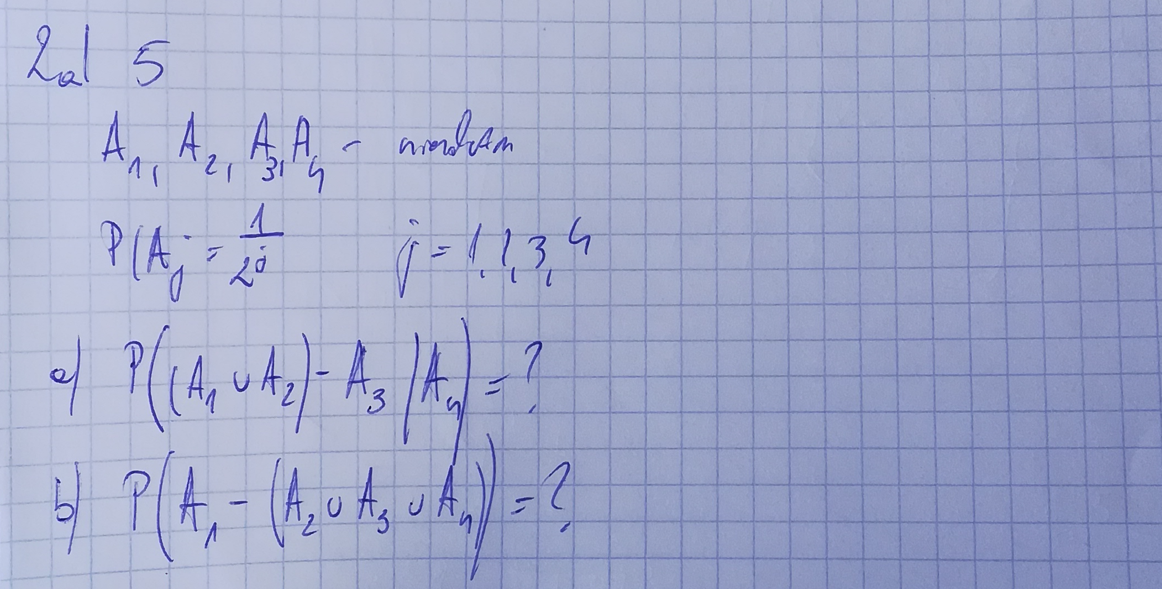 Zad 5
A₁, A₂, A₃, A₄ -
P(Aⱼ = 1/2ʲ j = 1,2,3,4
a) P((A₁ ∪ A₂) - A₃ | A₄) = ?
b) P(A₁ - (A₂ ∪ A₃ ∪ A₄)) = ?